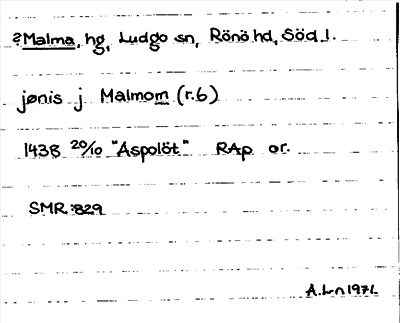 ?Malma, hg, Ludgo sn, Rönö hd, Söd.l.
jønis j Malmom (r.6)
1438 20/10 "Aspolöt" RAp or.
SMR:829
A.Ln 1971.